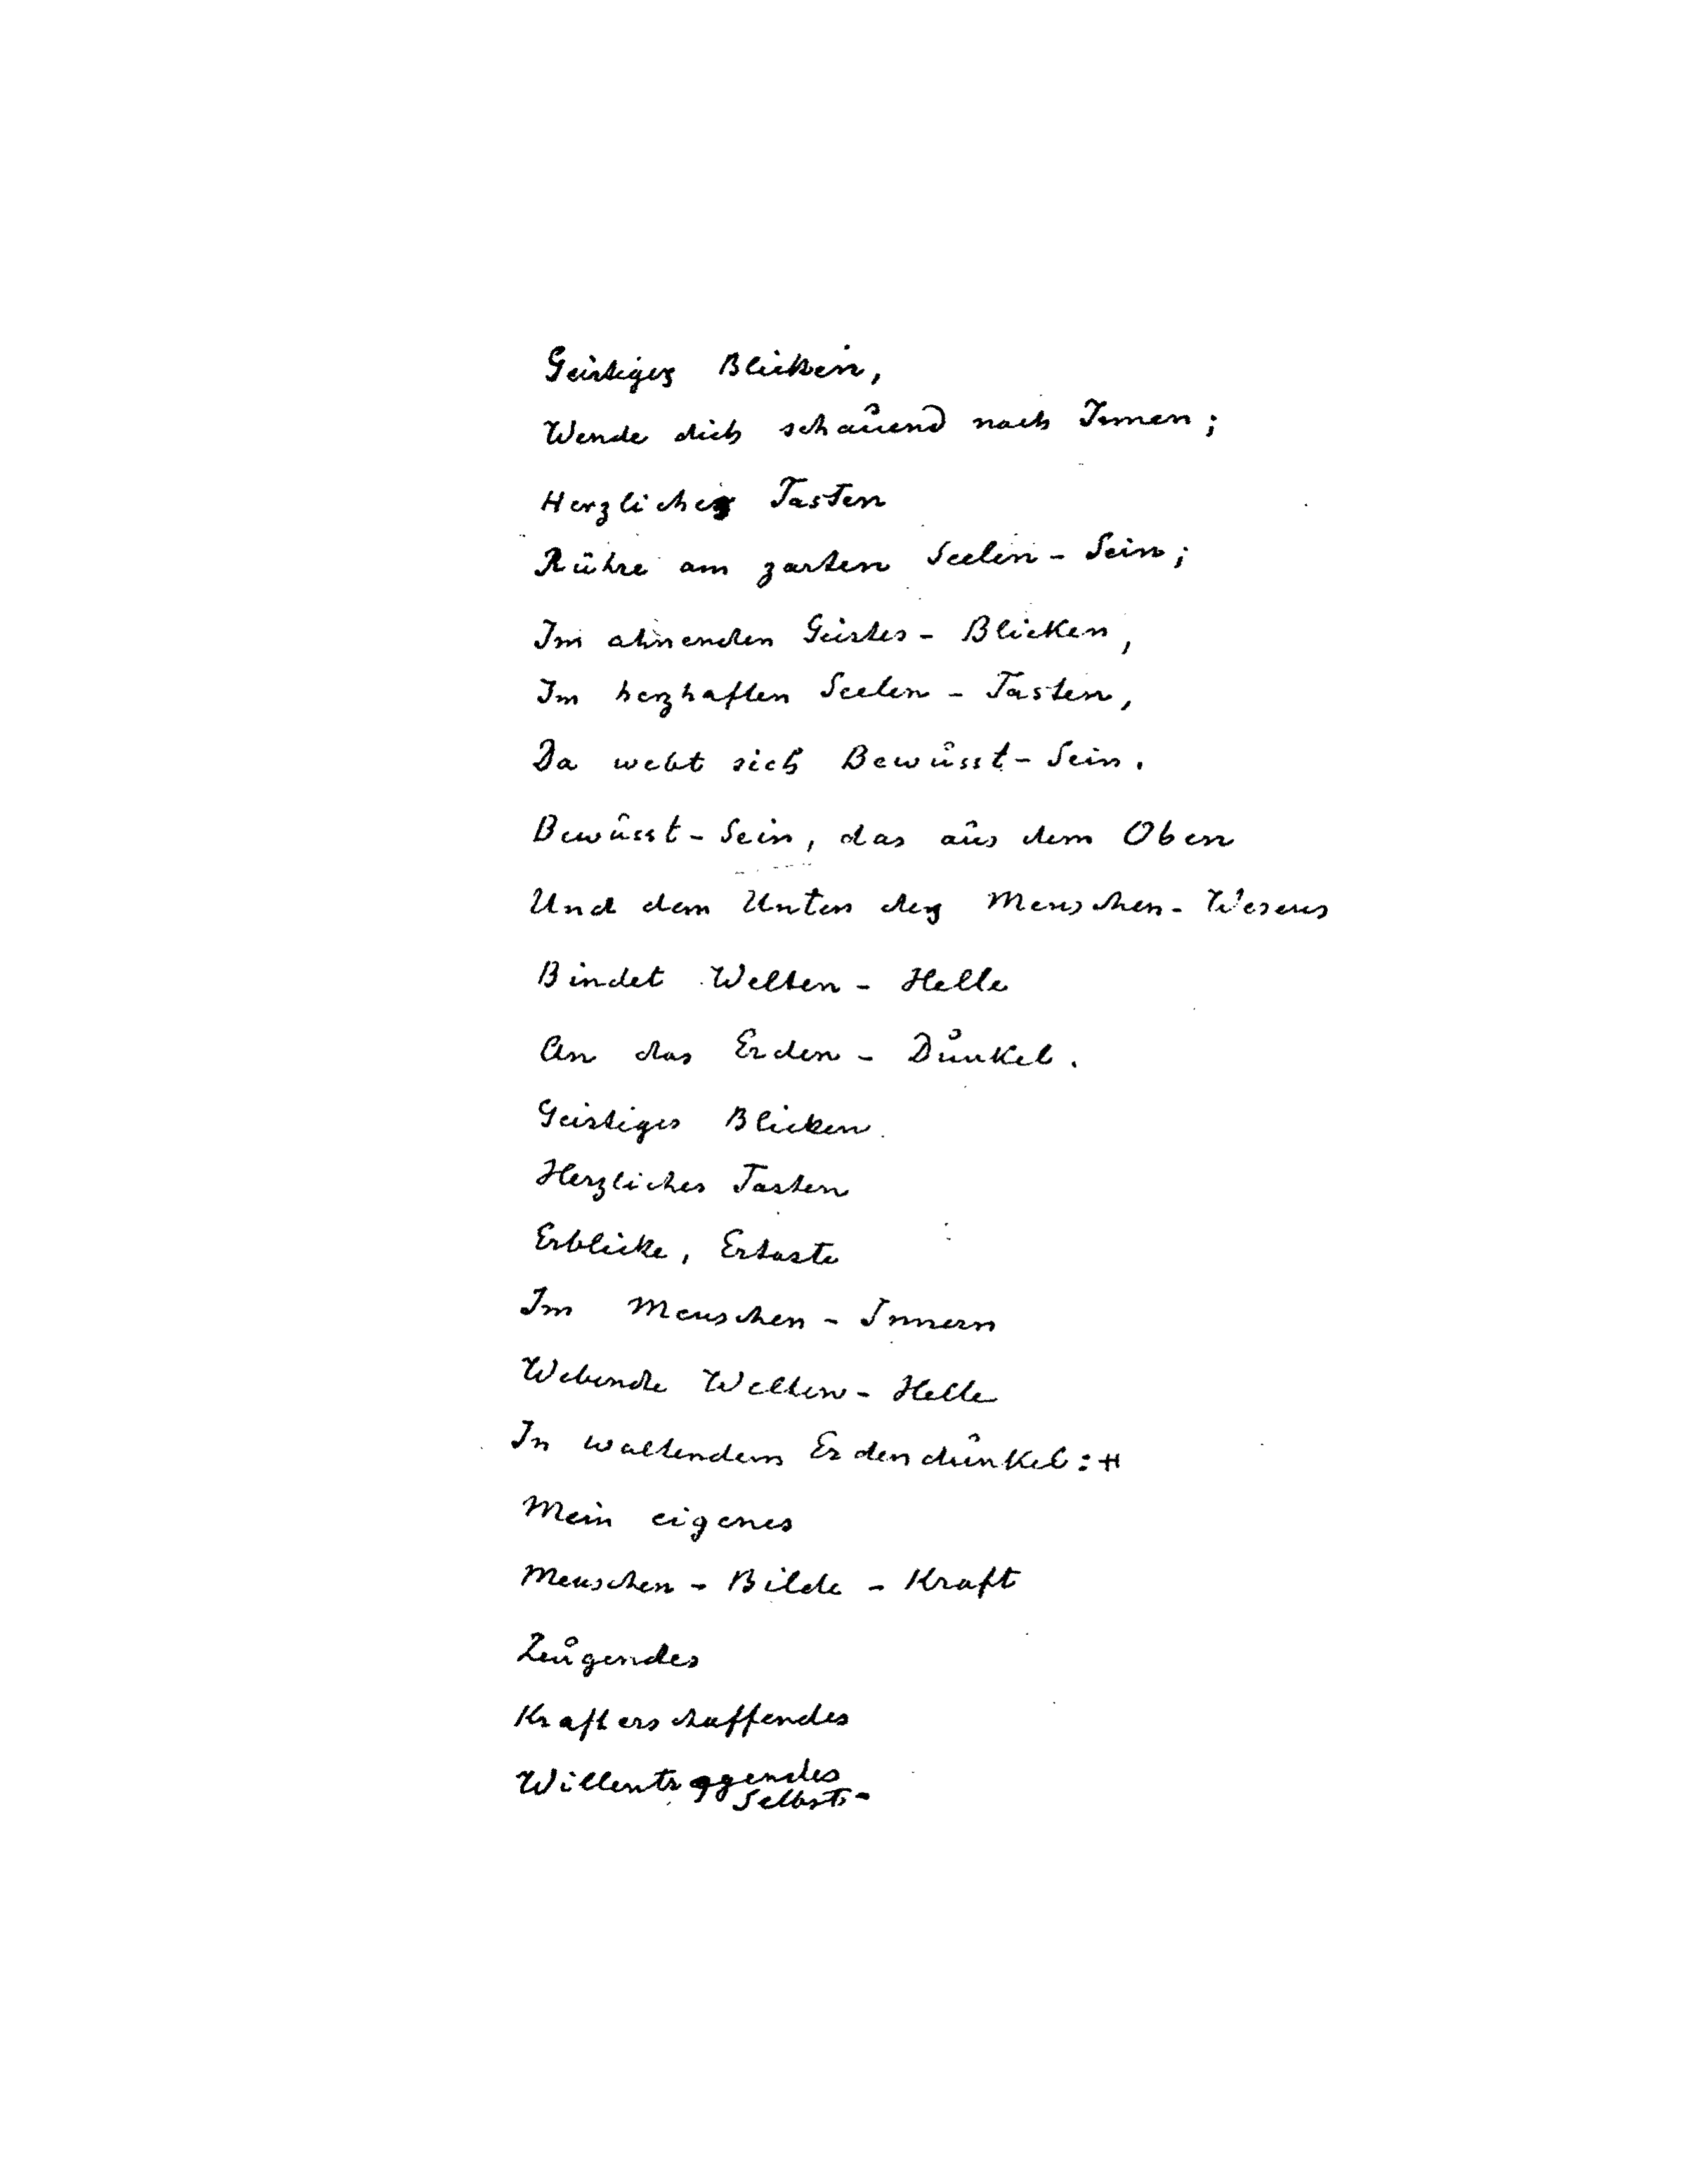 Geistiges Blicken,
Wende dich schauend nach Innen;
Herzliches Tasten
Rühre am zarten Seelen-Sein;
Im ahnenden Geistes-Blicken,
Im herzhaften Seelen-Tasten,
Da webt sich Bewusst-Sein.
Bewusst-Sein, das aus dem Oben
Und dem Unten des Menschen-Wesens
Bindet Welten-Helle
An das Erden-Dunkel.
Geistiges Blicken
Herzliches Tasten
Erblicke, Ertaste
Im Menschen-Innern
Webende Welten-Helle
In waltendem Erdendunkel:
Mein eigenes
Menschen-Bilde-Kraft
Zeugendes
Krafterschaffendes
Willentragendes
Selbst-